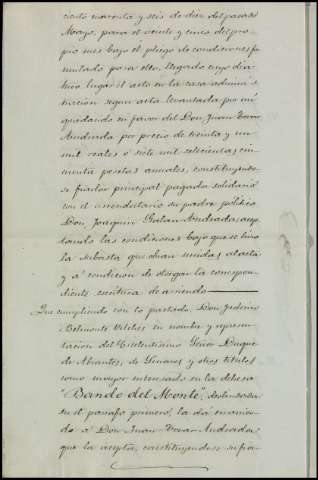 ciento cuarenta y seis de diez del pasado
Mayo, para el veinte y cinco del pro-
pio mes bajo el pliego de condiciones for-
mulado para ello. Llegado cuyo dia
hizo lugar el acto en la casa adminis-
tracion segun acta levantada por mi
quedando en favor del Don Juan
Andrada por precio de treinta y un
mil reales ó siete mil setecientas cin-
cuenta pesetas anuales, constituyendo
se fiador principal pagador solidario
con el arrendatario su padre politico
Don Joaquin Galan Andrada, acep-
tando las condiciones bajo que se hizo
la subasta que obran unidas al acta
y á condicion de otorgar la correspon-
diente escritura de arriendo
Que cumpliendo con lo pactado, Don Federico
Belmonte Vilches en nombre y represen-
tacion del Excelentisimo Señor Duque
de Abrantes, de Linares y otros titulos
como mayor interesado en la dehesa
"Bando del Monte", deslindada
en el parrafo primero, la dá en arrien-
do á Don Juan Andrada
que la acepta, constituyendose su fia-